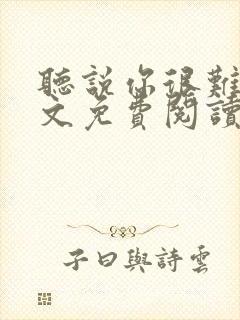 聽說你很難
文免費閱讀
子曰與詩雲